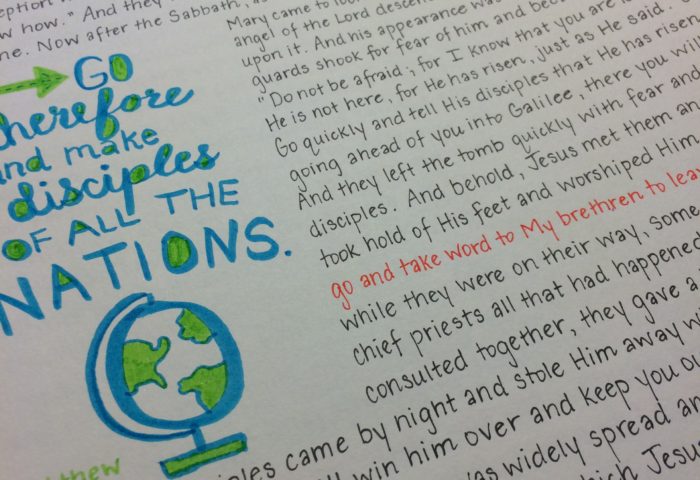 w how." And they
ne. Now after the Sabbath, as
GO
therefore
and make
disciples
OF ALL THE
NATIONS.
Mary came to
angel of the Lord descen
upon it. And his appearance was
guards shook for fear of him and bec
"Do not be afraid; for I know that you are
He is not here, for He has risen, just as He said.
Go quickly and tell His disciples that He has risen
going ahead of you into Galilee, there you wil
And they left the tomb quickly with fear and
disciples. And behold, Jesus met them an
took hold of His feet and worshiped Him
go and take word to My brethren to leav
while they were on their way, some
chief priests all that had happened
consulted together, they gave a
iples came by night and stole Him away w
win him over and keep you o
was widely spread an
hich Jesu
thew